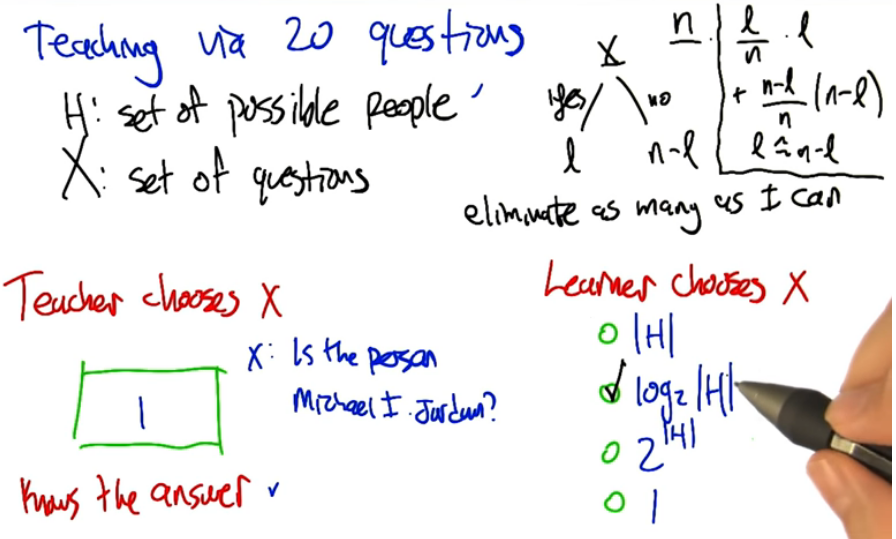 Teaching via 20 questions
H: set of possible people
X: set of questions
X
yes
no
l
n-l
n
l/n · l
+ n-l/n (n-l)
l ≈ n-l
eliminate as many as I can
Teacher chooses X
1
X: Is the person
Michael I. Jordan?
Knows the answer ✓
Learner chooses X
|H|
✓ log₂|H|
2^|H|
1